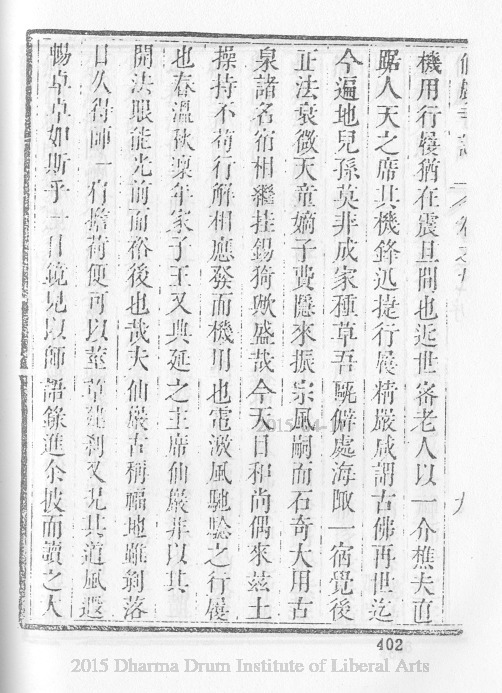 機用行履猶在震旦間也近世密老人以一介樵夫直
踞人天之席其機鋒迅捷行履精嚴咸謂古佛再世迄
今遍地兒孫莫非成家種草吾甌僻處海陬一宿覺後
正法衰微天童嫡子費隱來振宗風嗣而石奇大用古
泉諸名宿相繼挂錫猗歟盛哉今天日和尚偶來茲土
操持不苟行解相應發而機用也電激風馳騐之行履
也春溫秋凜年家子王又典延之主席仙巖非以其
開法眼能光前而裕後也哉夫仙巖古稱福地雖剝落
日久得師一肩擔荷便可以莖草建剎又見其道風遐
暢卓卓如斯乎一日鏡兄以師語錄進余披而讀之人
九
2015-04-1
402
2015 Dharma Drum Institute of Liberal Arts